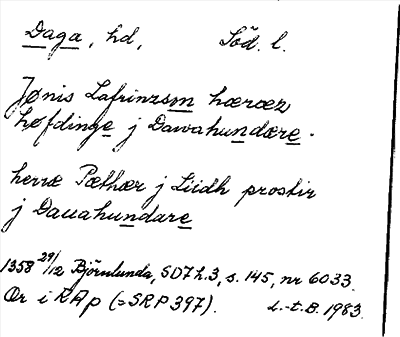 Daga, hd, Söd. l.
Jønis Lafrinzsm hæræz
høfdinge j Dawahundære.
herræ Pæthær j Liidh prostir
j Dauahundare
1358 29/12 Björnlunda, SD7 h.3, s. 145, nr 6033.
Or i RAp (=SRP 397). L.-t.B. 1983.